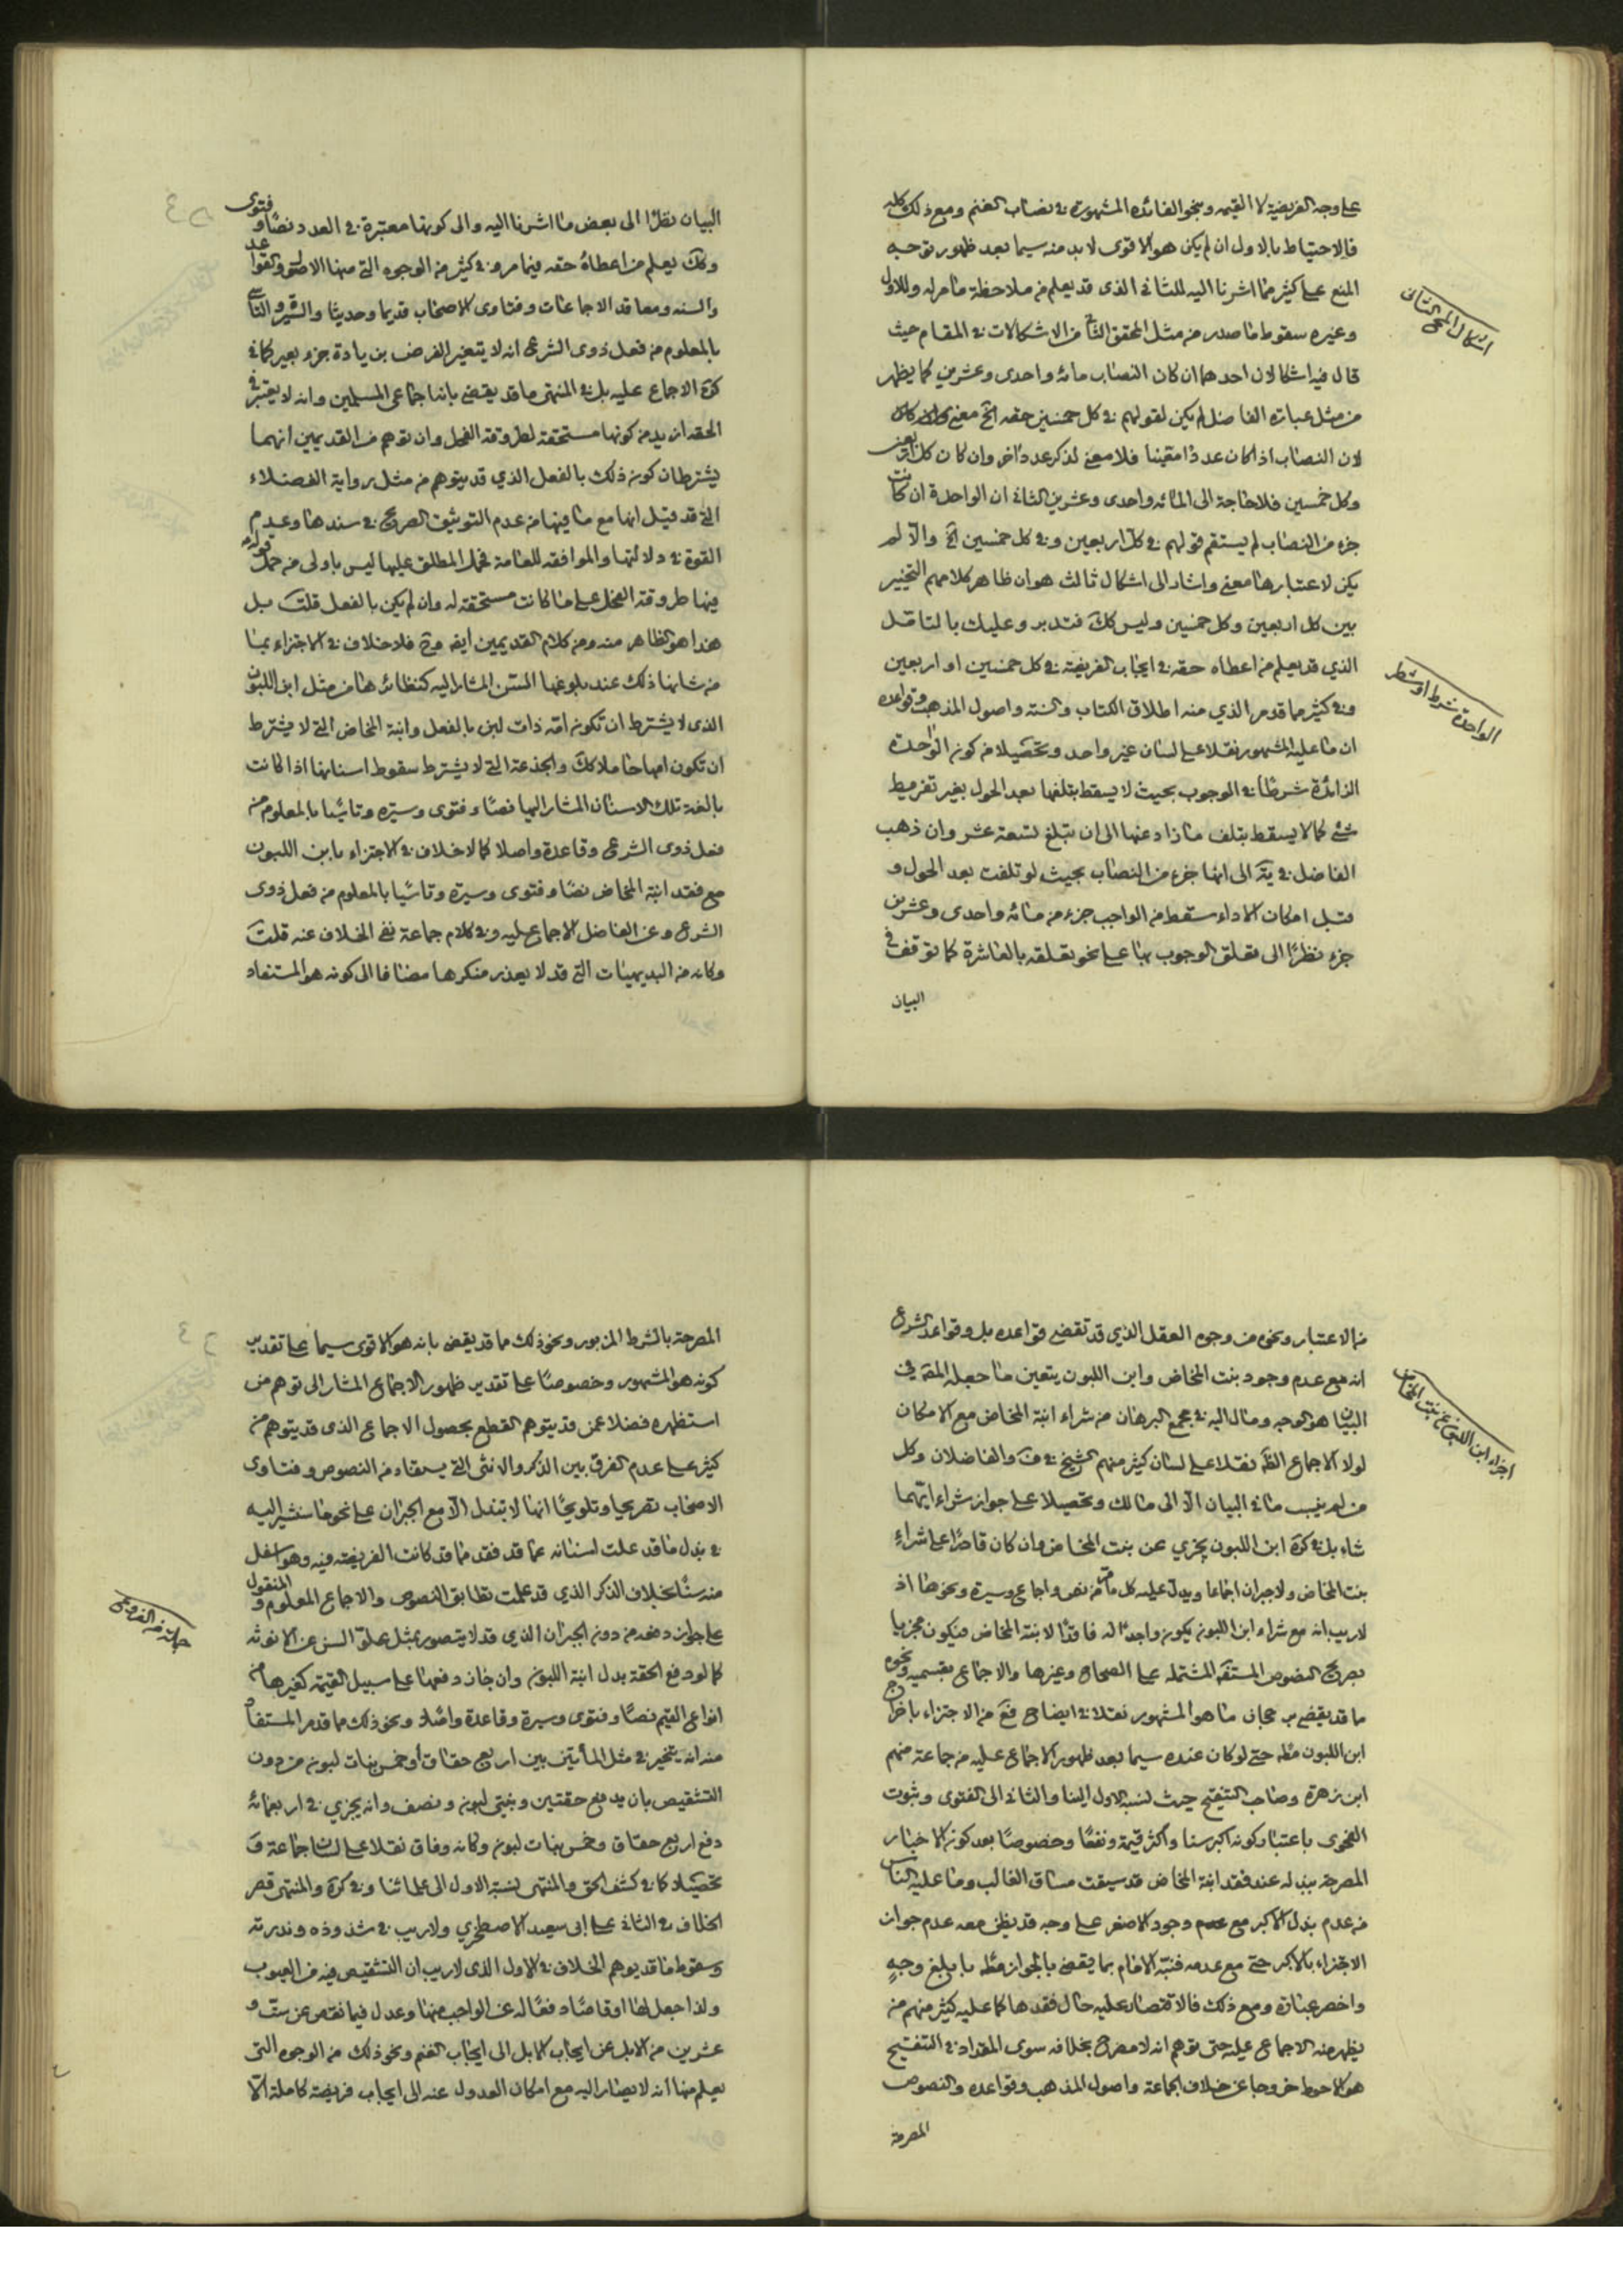 على وجه الفريضية لا القيمه وبنحو الفائده المشهورة في نصاب الغنم ومع ذلك كله
فالاحتياط بالاول ان لم يكن هو الاقوى لا بد منه سيما بعد ظهور توجيه
المنع على كثير مما اشرنا اليه للثاني الذي قد يعلم من ملاحظة ما مر له وللاول
وغيره سقوط ما صدر من مثل المحقق الثاني من الاشكالات في المقام حيث
اشكال المحقق الثاني
قال فيه اشكالان احدهما ان كان النصاب مائه واحدى وعشرين كما يظهر
من مثل عبارة الفاضل لم يكن لقولهم في كل خمسين حقه الخ معنى
لان النصاب اذا كان عددا معينا فلا معنى لذكر عدد اخر وان كان كل اربعين
وكل خمسين فلا حاجة الى المائه واحدى وعشرين الثاني ان الواحدة ان كانت
جزء من النصاب لم يستقم قولهم في كل اربعين وفي كل خمسين الخ والا لم
يكن لاعتبارها معنى واشار الى اشكال ثالث هو ان ظاهر كلامهم التخيير
بين كل اربعين وكل خمسين وليس كك فتدبر وعليك بالتامل
الذي قد يعلم من اعطاه حقه في ايجاب الفريضة في كل خمسين او اربعين
الواحدة شرط او شطر
وفي كثير مما قدم الذي منه اطلاق الكتاب والسنه واصول المذهب وقواعده
ان ما عليه المشهور نقلا على لسان غير واحد وتحصيلا من كون الواحدة
الزائدة شرطا في الوجوب بحيث لا يسقط بتلفها بعد الحول بغير تفريط
شئ كما لا يسقط بتلف ما زاد عنها الى ان تبلغ تسعة عشر وان ذهب
الفاضل في ية الى انها جزء من النصاب بحيث لو تلفت بعد الحول و
قبل امكان الاداء سقط من الواجب جزء من مائه واحدى وعشرين
جزء نظرًا الى تعلق الوجوب بها على نحو تعلقه بالعاشرة كما توقف في
البيان
البيان نظرًا الى بعض ما اشرنا اليه والى كونها معتبرة في العدد نصًا وفتوى
وكك يعلم من اعطاه حقه فيما مر وفي كثير من الوجوه التي منها الاصل والقواعد
والسنه ومعاقد الاجماعات وفتاوى الاصحاب قديما وحديثا والسيرة والتأسي
بالمعلوم من فعل ذوى الشرع انه لا يتغير الفرض بزيادة جزء بعير كما في
كرة الاجماع عليه بل في المنتهى ما قد يقضي بانه اجماعى المسلمين وانه لا يعتبر في
الحقه ازيد من كونها مستحقة لطروقة الفحل وان توهم من القديمين انهما
يشترطان كون ذلك بالفعل الذي قد يتوهم من مثل رواية الفضلاء
التي قد قيل انها مع ما فيها من عدم التوثيق الصريح في سندها وعدم
القوة في دلالتها والموافقه للعامة فحمل المطلق عليها ليس باولى من حمل قوله
فيها طروقة الفحل على ما كانت مستحقة له وان لم يكن بالفعل قلت بل
هذا هو الظاهر منه ومن كلام القديمين ايضا وح فلا خلاف في الاجتزاء بما
من شانها ذلك عند بلوغها السن المشار اليه كنظائرها من مثل ابن اللبون
الذى لا يشترط ان تكون امه ذات لبن بالفعل وابنة المخاض التي لا يشترط
ان تكون امها حاملا كك والجذعة التي لا يشترط سقوط اسنانها اذا كانت
بالغة تلك الاسنان المشار اليها نصًا وفتوى وسيره وتاسيا بالمعلوم من
فعل ذوى الشرع وقاعدة واصلا كما لا خلاف في الاجتزاء بابن اللبون
مع فقد ابنة المخاض نصًا وفتوى وسيرة وتاسيا بالمعلوم من فعل ذوى
الشرع وعن الفاضل الاجماع عليه وفي كلام جماعة نفي الخلاف عنه قلت
وكانه من البديهيات التي قد لا يعذر منكرها مضافا الى كونه هو المستفاد
من الاعتبار ونحوه من وجوه العقل الذي قد تقضي قواعده بل وقواعد الشرع
انه مع عدم وجود بنت المخاض وابن اللبون يتعين ما جعله المقه في
اجزاء ابن اللبون عن بنت المخاض
البيان هو الوجه ومال اليه في مجمع البرهان من شراء ابنة المخاض مع الامكان
لولا الاجماع الظه نقلا على لسان كثير منهم الشيخ في ف والفاضلان وكل
من لم ينسب ما في البيان الا الى مالك وتحصيلا على جواز شراء ايتهما
شاء بل في كرة ابن اللبون يجزي عن بنت المخاض وان كان قادرًا على شراء
بنت المخاض ولا جبران اجماعا ويدل عليه كل ما مر من نص واجماع وسيرة ونحوها اذ
لا ريب انه مع شراء ابن اللبون يكون واجدًا له فاقدًا لابنة المخاض فيكون مجزيا
بصريح النصوص المستفه المشتمله على الصحاح وغيرها والاجماع بقسميه ونحوه
ما قد يقضي برجحان ما هو المشهور نقلا في ايضاح فع من الاجتزاء باخراج
ابن اللبون مطه حتى لو كان عنده سيما بعد ظهور الاجماع عليه من جماعة منهم
ابن زهرة وصاحب التنقيح حيث نسبه الاول الينا والثاني الى الفتوى وثبوت
الفحوى باعتبار كونه اكبر سنا واكثر قيمة ونفعًا وخصوصًا بعد كون الاخبار
المصرحة ببذله عند فقد ابنة المخاض قد سيقت مساق الغالب وما عليه الناس
من عدم بذل الاكبر مع وجود الاصغر على وجه قد يظن معه عدم جواز
الاجتزاء بالاكبر حتى مع عدمه فنبه الامام بما يقضي بالجواز مطه بابلغ وجه
واخصر عبارة ومع ذلك فالاقتصار عليه حال فقدها كما عليه كثير منهم من
يظهر منه الاجماع عليه حتى توهم انه لا مصرح بخلافه سوى المقداد في التنقيح
هو الاحوط خروجا عن خلاف الجماعة واصول المذهب وقواعده والنصوص
المصرحة
المصرحة بالشرط المزبور ونحو ذلك مما قد يقضي بانه هو الاقوى سيما على تقدير
كونه هو المشهور وخصوصًا على تقدير ظهور الاجماع المشار الى توهم من
استظهره فضلا عمن قد يتوهم القطع بحصول الاجماع الذى قد يتوهم من
كثير على عدم الفرق بين الذكر والانثى التي يستفاد من النصوص وفتاوى
الاصحاب تصريحا وتلويحًا انها لا تبذل الا مع الجبران على نحو ما سنشير اليه
في بدل ما قد علت اسنانه عما قد فقد مما قد كانت الفريضه فيه وهو اسفل
منه سنًا بخلاف الذكر الذي قد علمت تطابق النصوص والاجماع المعلوم والمنقول
جملة من الفروع
على جواز دفعه من دون الجبران الذي قد لا يتصور بمثل علو السن عن الانوثه
كما لو دفع الحقة بدل ابنة اللبون وان جاز دفعها على سبيل القيمة كغيرها من
انواع القيم نصًا وفتوى وسيرة وقاعدة واصلا ونحو ذلك مما قدم المستفاد
منه انه يتخير في مثل المأتين بين اربع حقاق او خمس بنات لبون من دون
التشقيص بان يدفع حقتين وبنتي لبون ونصف وانه يجزي في اربعمائة
دفع اربع حقاق وخمس بنات لبون وكانه وفاق نقلا على لسان جماعة و
تحصيلا كما في كشف الحق والمنتهى نسبة الاول الى علمائنا وفي كرة والمنتهى قصر
الخلاف في الثاني على ابى سعيد الاصطخري ولا ريب في شذوذه وندرته
وسقوط ما قد يوهم الخلاف في الاول الذى لا ريب ان التشقيص فيه من العيوب
ولذا جعل لها اوقاصًا دفعًا له عن الواجب منها وعدل فيما نقص عن ست و
عشرين من الابل عن ايجاب الابل الى ايجاب الغنم ونحو ذلك من الوجوه التي
يعلم منها انه لا يصار اليه مع امكان العدول عنه الى ايجاب فريضة كاملة الا